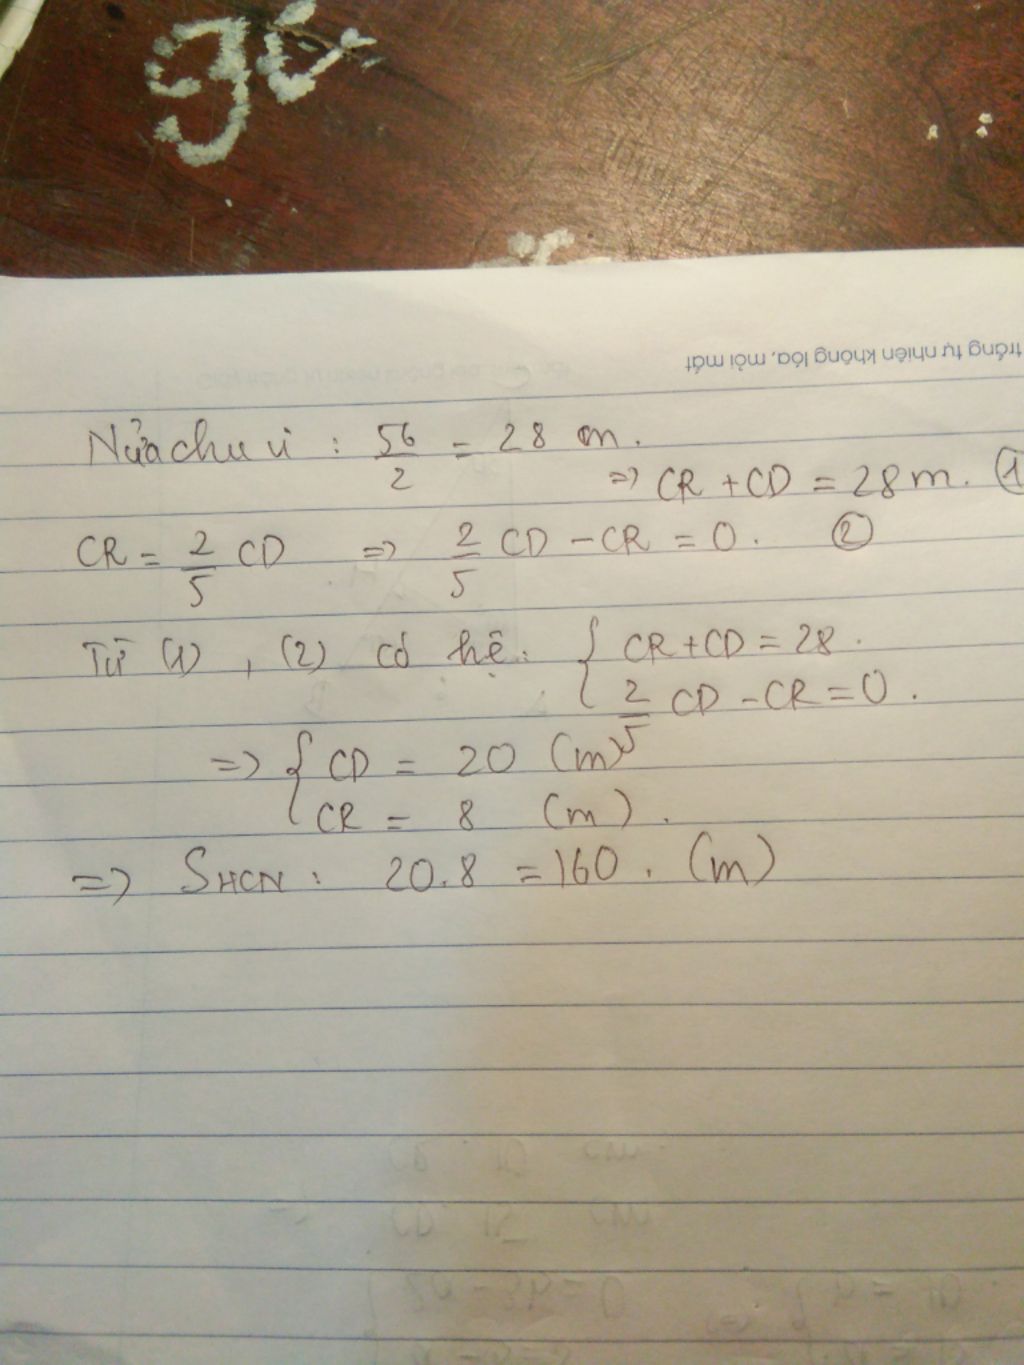 trắng tự nhiên không lóa, mỏi mắt
Nửa chu vi : 56/2 = 28 m.
=> CR + CD = 28 m. ①
CR = 2/5 CD => 2/5 CD - CR = 0. ②
Từ (1), (2) có hệ: { CR + CD = 28.
2/5 CD - CR = 0.
=> { CD = 20 (m)
CR = 8 (m).
=> SHCN : 20.8 = 160. (m)